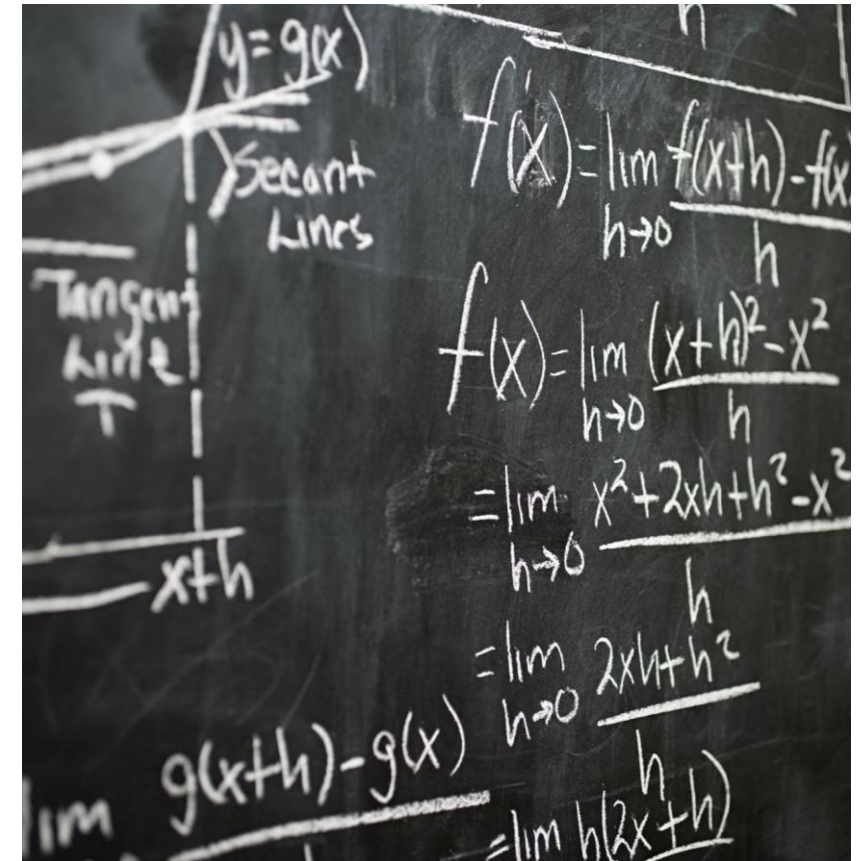 y=g(x)
Secant
Lines
Tangent
Line
T
x+h
lim g(x+h)-g(x)
h
f'(x)=lim f(x+h)-f(x)
h→0
h
f(x)=lim (x+h)²-x²
h→0
h
=lim x²+2xh+h²-x²
h→0
h
=lim 2xh+h²
h→0
h
=lim h(2x+h)